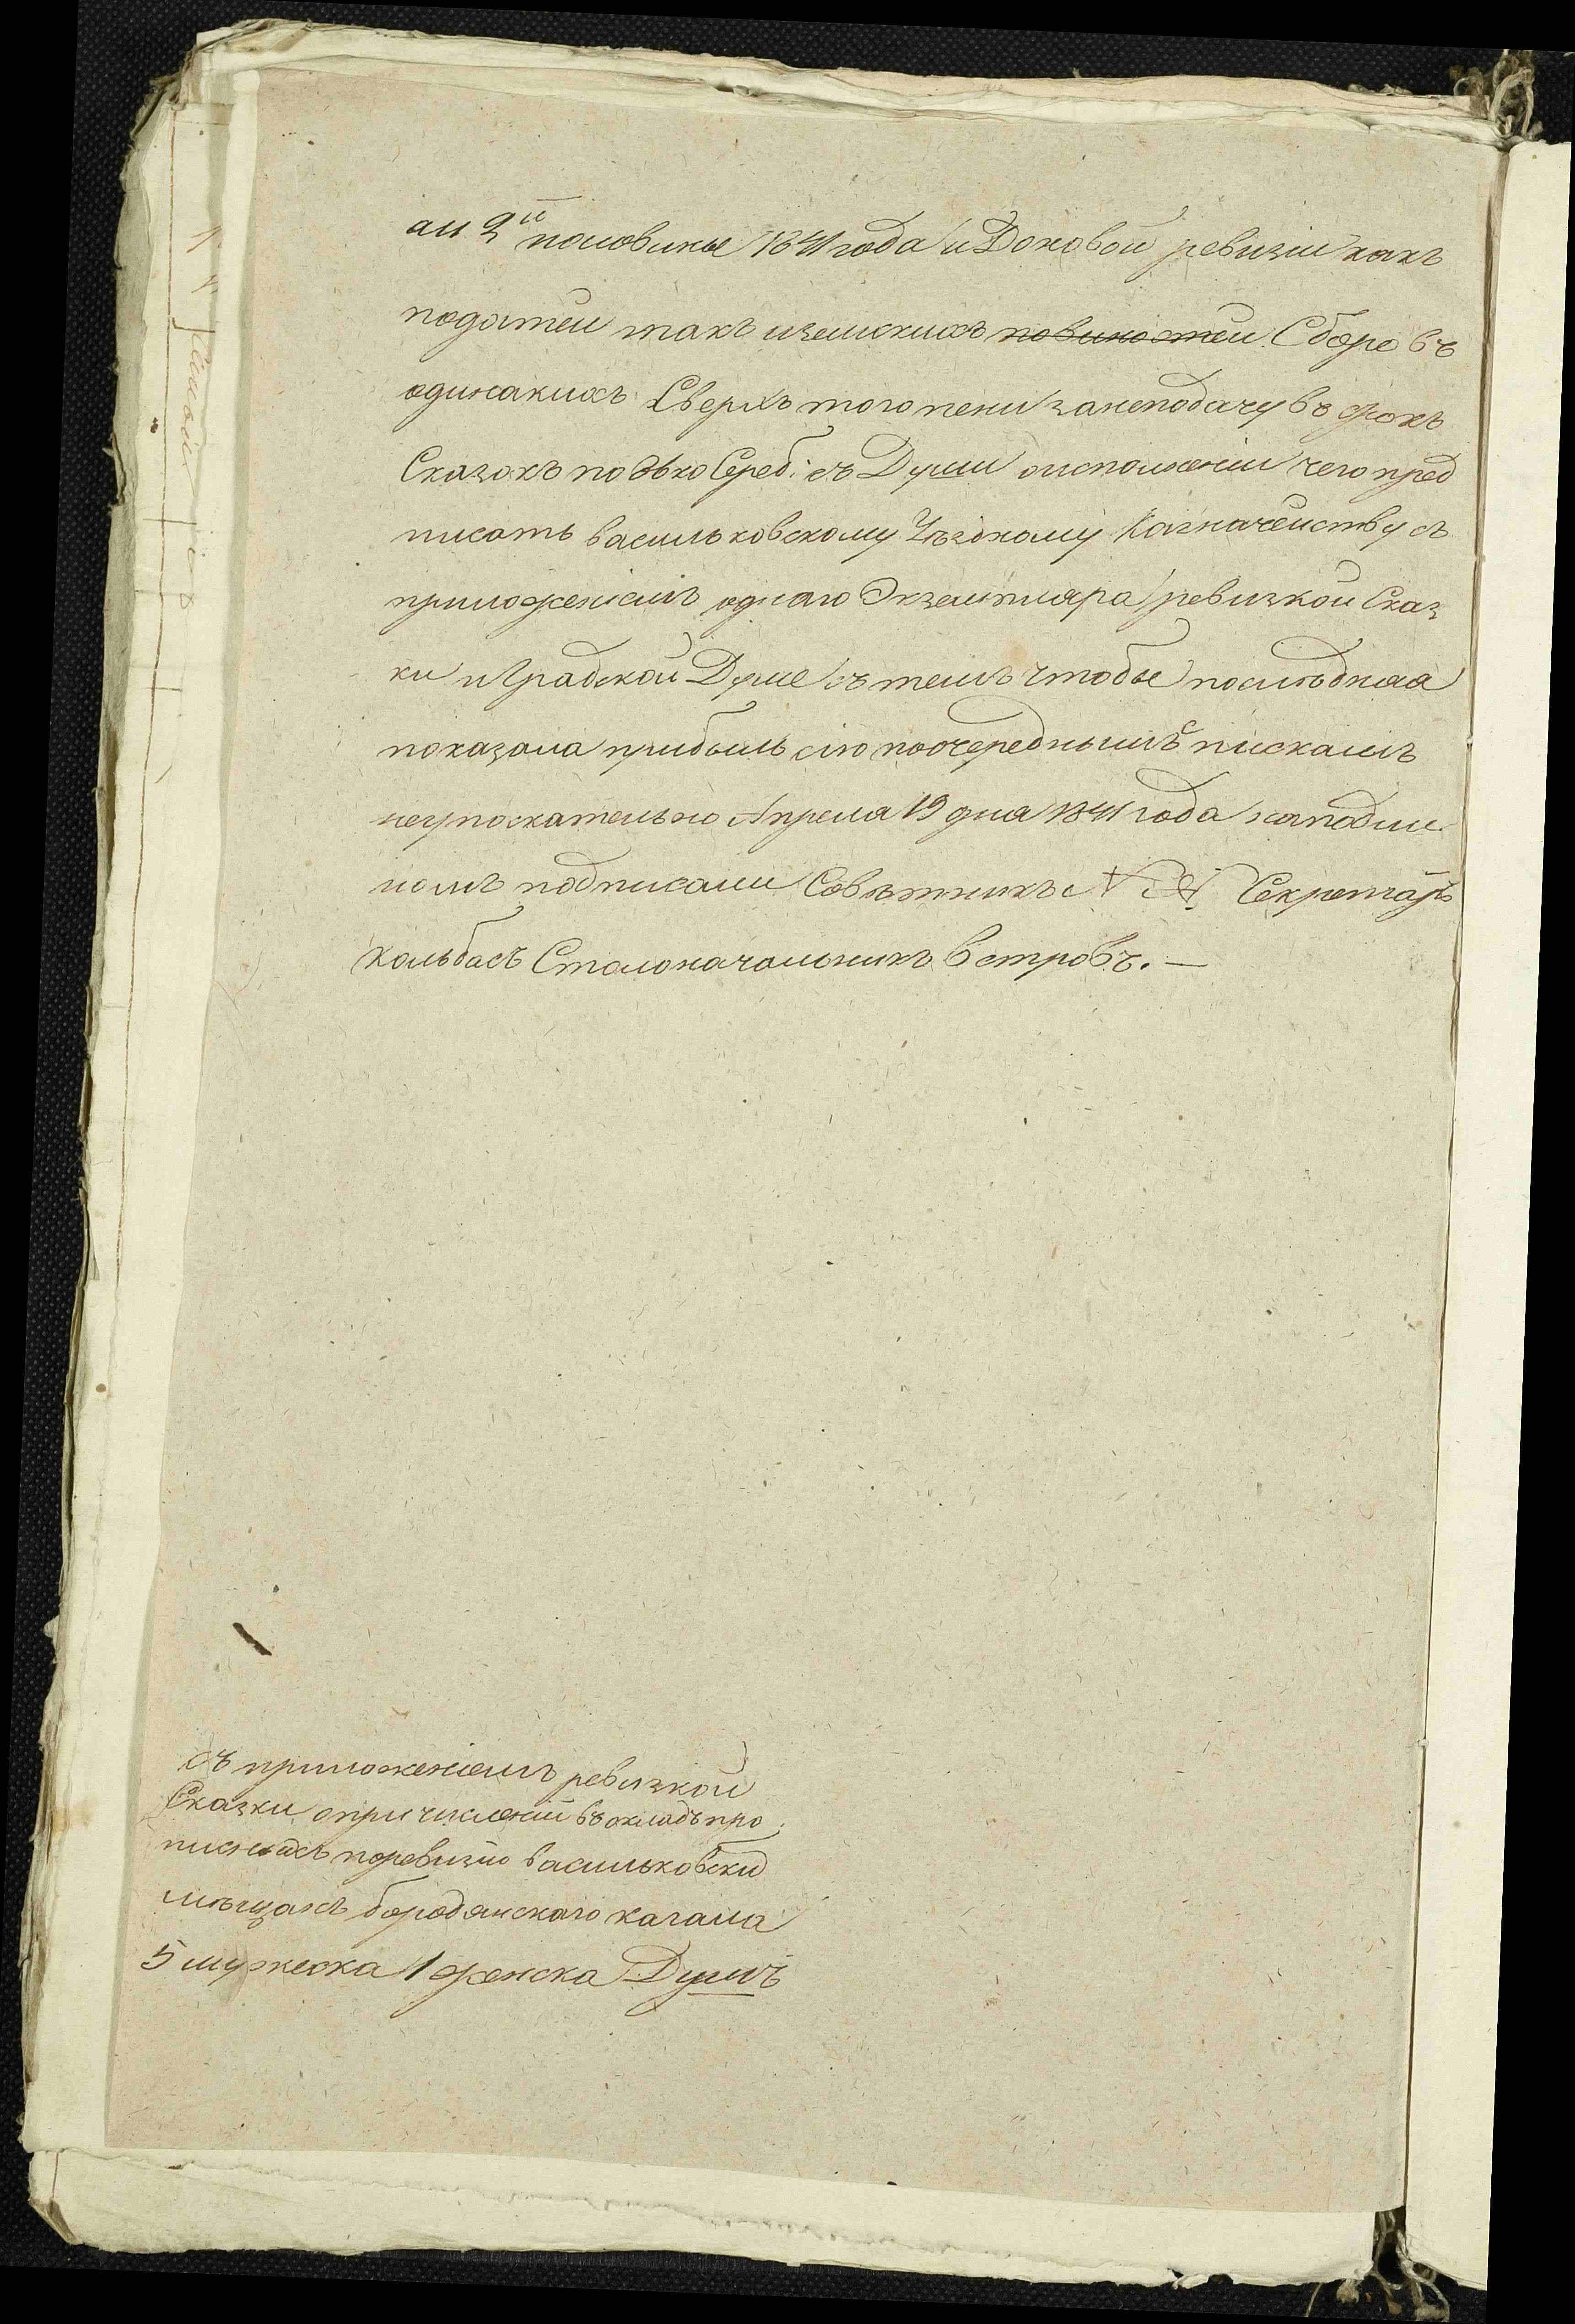 ам 2й половины 1841 года и До новой ревизіи какъ
податей такъ иземскихъ повиностей Сборовъ
одинакихъ Сверхъ того пени занеподачу въ срокъ
Сказокъ по Сереб: съ Души оисполненіи чего пред
писать васильковскому Уѣздному Казначейству съ
приложеніемъ однаго Экземпляра ревизкой Сказ
ки и Градской Думе съ темъ чтобы последняя
показала прибыль сію поочереднымъ спискамъ
неупоскательно Апреля 19 дня 1841 года наподлин
номъ подписали Советникъ N N Секретарь
Кольбасъ Столоначальникъ Встровъ. —
съ приложеніемъ ревизкой
Сказки опричисленіи въ окладъ про
писныхъ поревизіи васильковски
мѣщанъ бородянскаго кагала
5 мужеска 1 женска Душъ